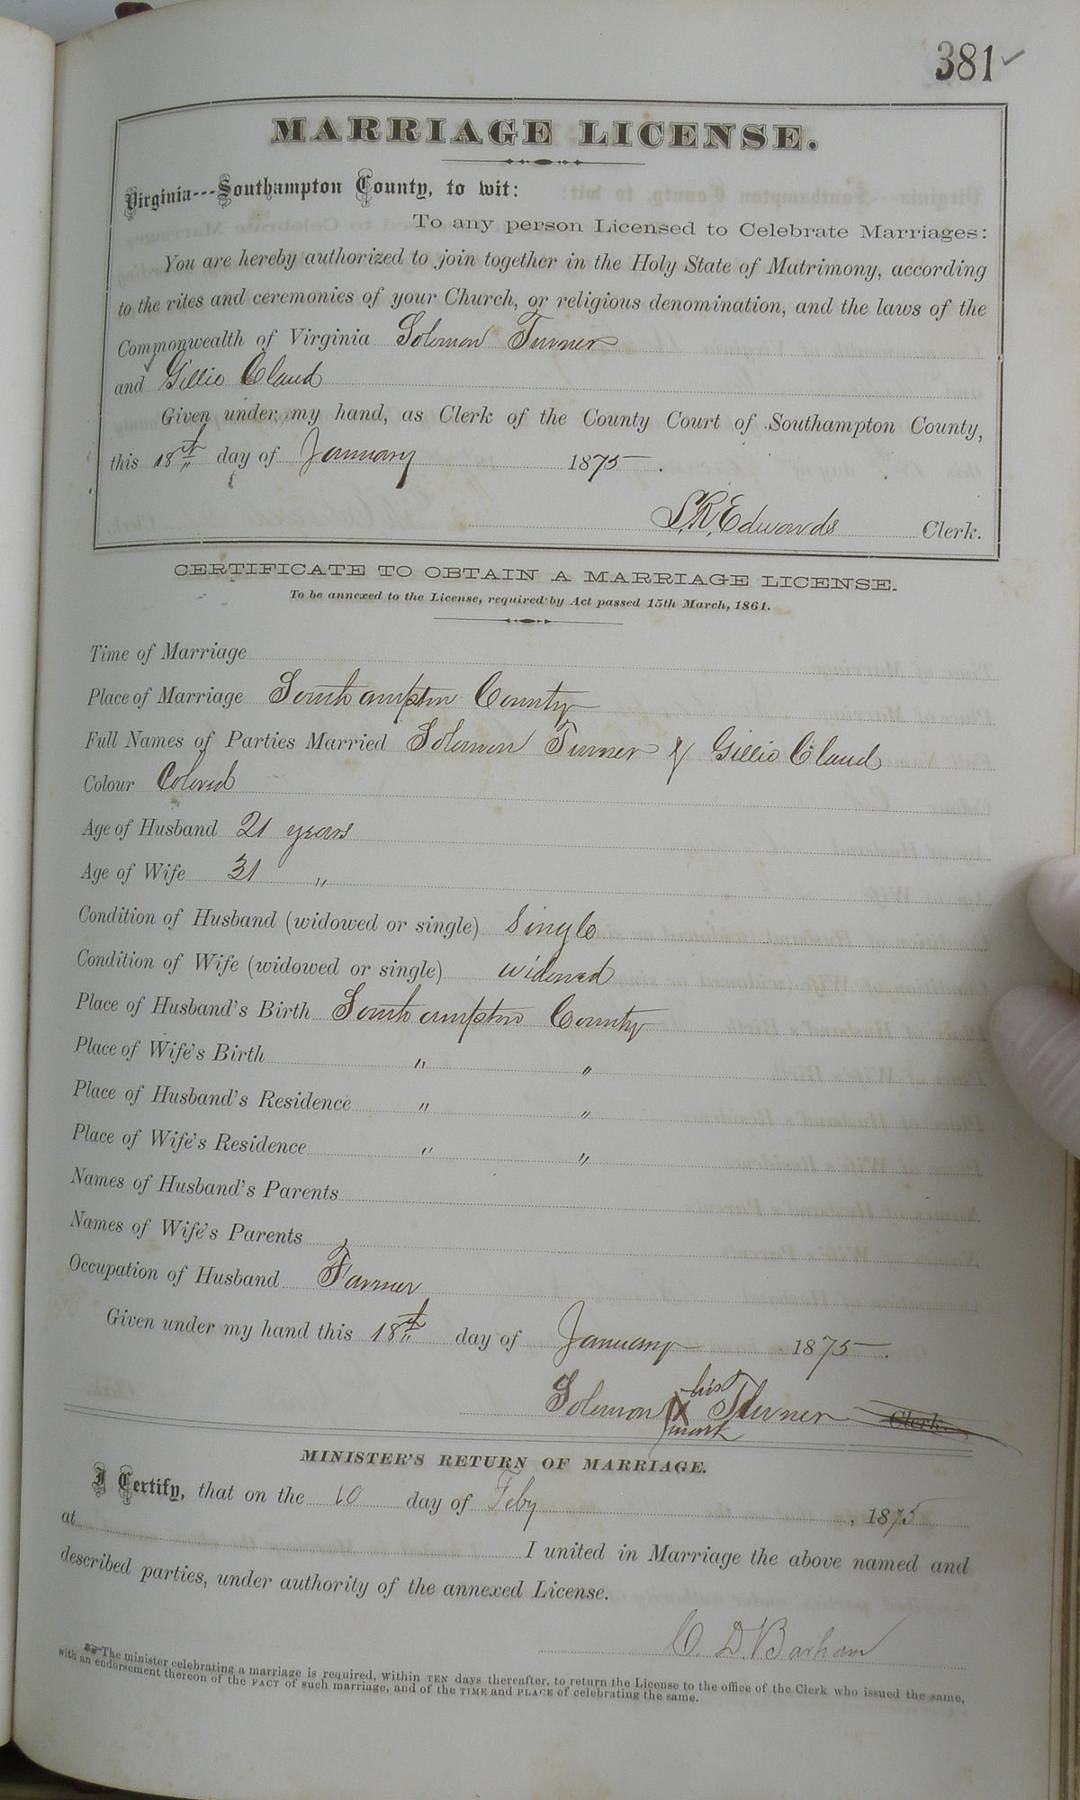 381
MARRIAGE LICENSE.
Virginia---Southampton County, to wit:
To any person Licensed to Celebrate Marriages:
You are hereby authorized to join together in the Holy State of Matrimony, according
to the rites and ceremonies of your Church, or religious denomination, and the laws of the
Commonwealth of Virginia Solomon Turner
and Gillie Claud
Given under my hand, as Clerk of the County Court of Southampton County,
this 18th day of January 1875.
S.R. Edwards Clerk.
CERTIFICATE TO OBTAIN A MARRIAGE LICENSE.
To be annexed to the License, required by Act passed 15th March, 1861.
Time of Marriage
Place of Marriage Southampton County
Full Names of Parties Married Solomon Turner & Gillie Claud
Colour Colored
Age of Husband 21 years
Age of Wife 31 "
Condition of Husband (widowed or single) Single
Condition of Wife (widowed or single) widowed
Place of Husband's Birth Southampton County
Place of Wife's Birth " "
Place of Husband's Residence " "
Place of Wife's Residence " "
Names of Husband's Parents
Names of Wife's Parents
Occupation of Husband Farmer
Given under my hand this 18th day of January 1875.
his
Solomon X Turner Clerk.
mark
MINISTER'S RETURN OF MARRIAGE.
I Certify, that on the 10 day of Feby, 1875
at I united in Marriage the above named and
described parties, under authority of the annexed License.
C. D. Barham
The minister celebrating a marriage is required, within TEN days thereafter, to return the License to the office of the Clerk who issued the same,
with an endorsement thereon of the FACT of such marriage, and of the TIME and PLACE of celebrating the same.